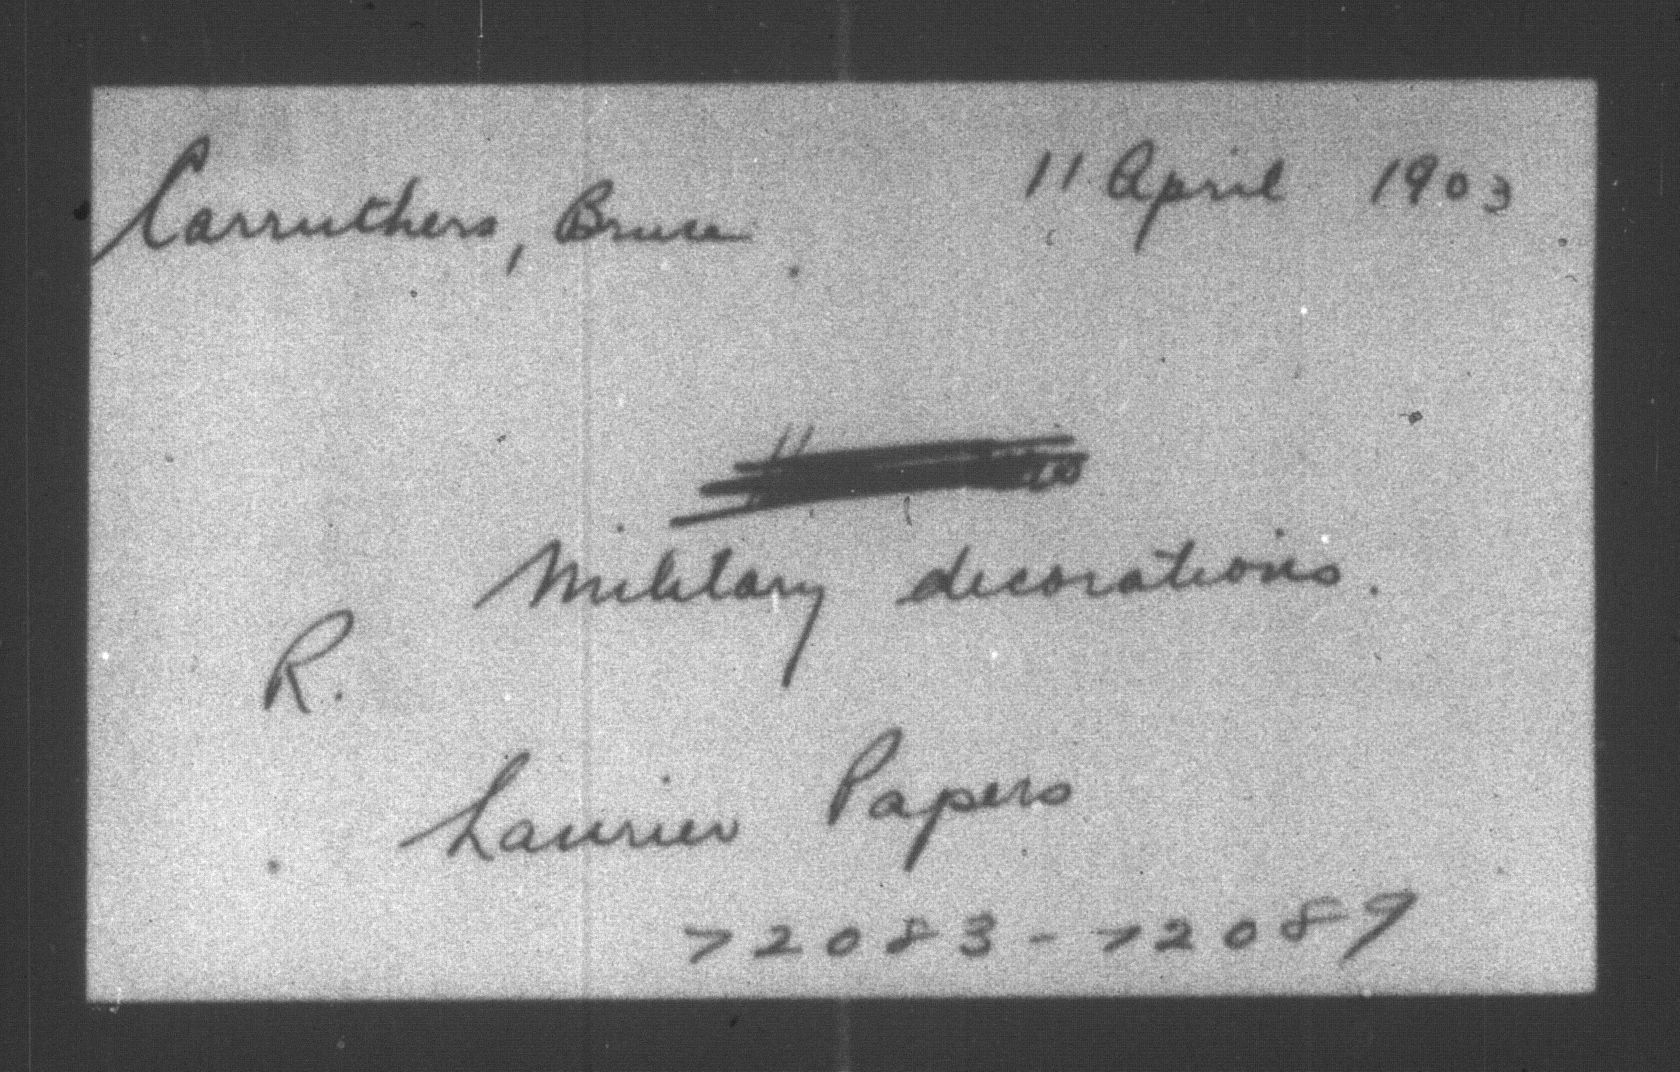 Carruthers, Bruce 11 April 1903
Military decorations.
R.
Laurier Papers
72083-72089